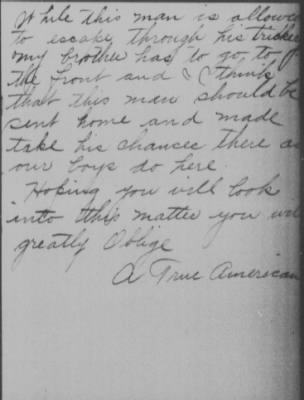 While this man is allowed
to escape through his
my brother has to go to
the front and I think
that this man should be
sent home and made
take his chances there as
our boys do here.
Hoping you will look
into this matter you will
greatly Oblige
A True American